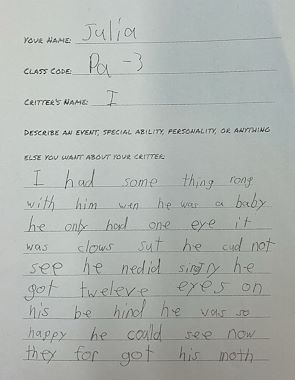 YOUR NAME: Julia
CLASS CODE: Pa -3
CRITTER'S NAME: I
DESCRIBE AN EVENT, SPECIAL ABILITY, PERSONALITY, OR ANYTHING
ELSE YOU WANT ABOUT YOUR CRITTER:
I had some thing rong
with him wen he was a baby
he only had one eye it
was clows sut he cud not
see he nedid sirjry he
got tweleve eyes on
his be hind he was so
happy he could see now
they for got his moth